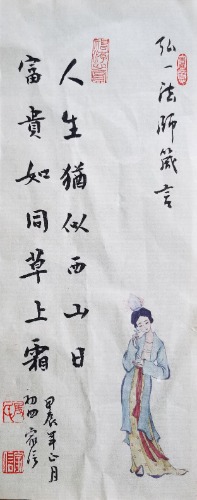 弘一法師箴言
人生猶似西山日
富貴如同草上霜
甲辰年正月
初四家信